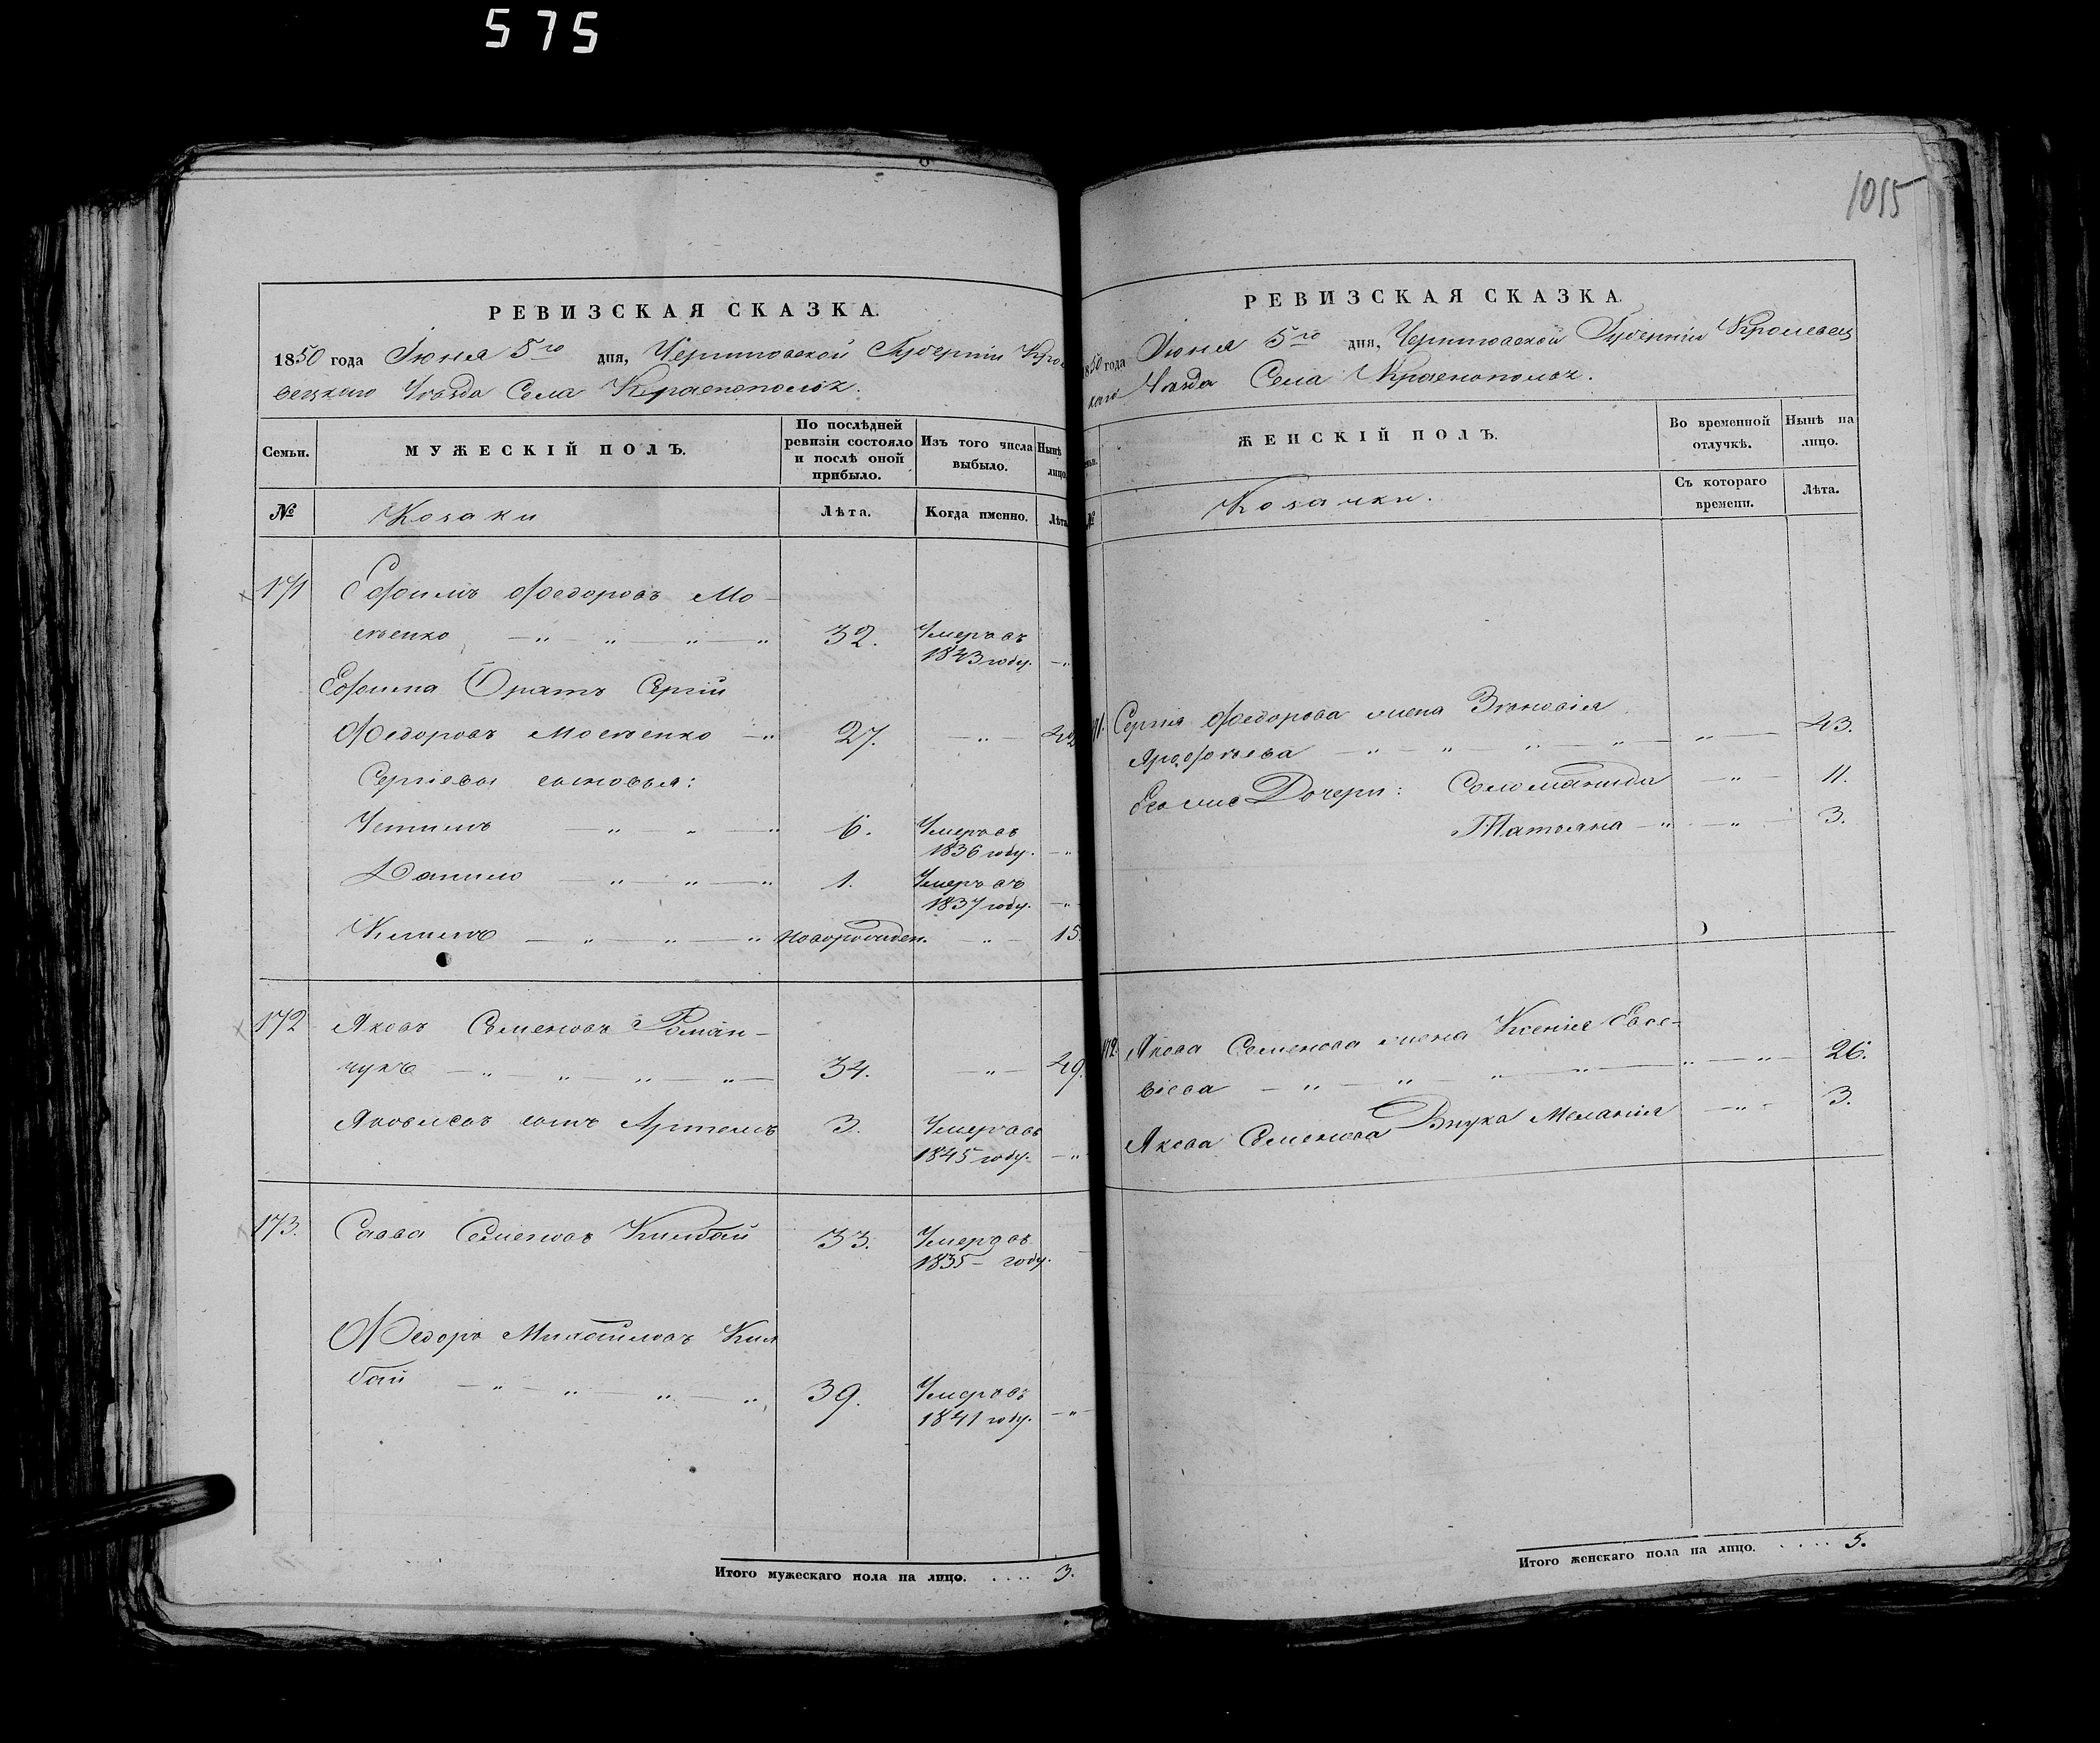 575
РЕВИЗСКАЯ СКАЗКА.
1850 года Июня 5го дня, Черниговской Губернии Кро
вецкаго Уезда Села Краснополья.
Семьи.
МУЖЕСКІЙ ПОЛЪ.
По послѣдней ревизіи состояло и послѣ оной прибыло.
Изъ того числа выбыло.
Нынѣ лицо
№
Козаки
Лѣта.
Когда именно.
Лѣта
171 Ефимъ Федоровъ Мо-
32. Умеръ въ
1843 году.
Ефима Братъ Сергій
Федоровъ 27.
Сергіевы сыновья:
6. Умеръ въ
1836 году.
Данило 1. Умеръ въ
1837 году.
новорожден. 15.
172 Яковъ Семеновъ Роман-
чукъ 34. 49.
Яковлевъ сынъ Артемъ 3. Умеръ въ
1845 году.
173. Савва Семеновъ 33. Умеръ въ
1835 году.
Федоръ
бай 39. Умеръ въ
1841 году.
Итого мужескаго пола на лицо. .... 3.
1055
РЕВИЗСКАЯ СКАЗКА.
1850 года Июня 5го дня, Черниговской Губернии Кролевец
каго Уезда Села Краснополья.
ЖЕНСКІЙ ПОЛЪ.
Во временной отлучкѣ.
Нынѣ на лицо.
№
Козачки.
Съ котораго времени.
Лѣта.
171. Сергія Федорова жена Зѣновія
43.
Дочери: 11.
Татьяна 3.
172 Якова Семенова жена Ксенія Евсе-
віева 26.
Якова Семенова Внука Меланія 3.
Итого женскаго пола на лицо. .... 5.